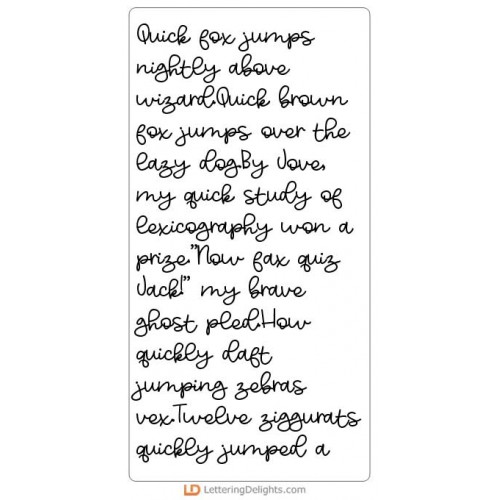 Quick fox jumps
nightly above
wizard.Quick brown
fox jumps over the
lazy dog.By Jove,
my quick study of
lexicography won a
prize."Now fax quiz
Jack!" my brave
ghost pled.How
quickly daft
jumping zebras
vex.Twelve ziggurats
quickly jumped a
LD LetteringDelights.com